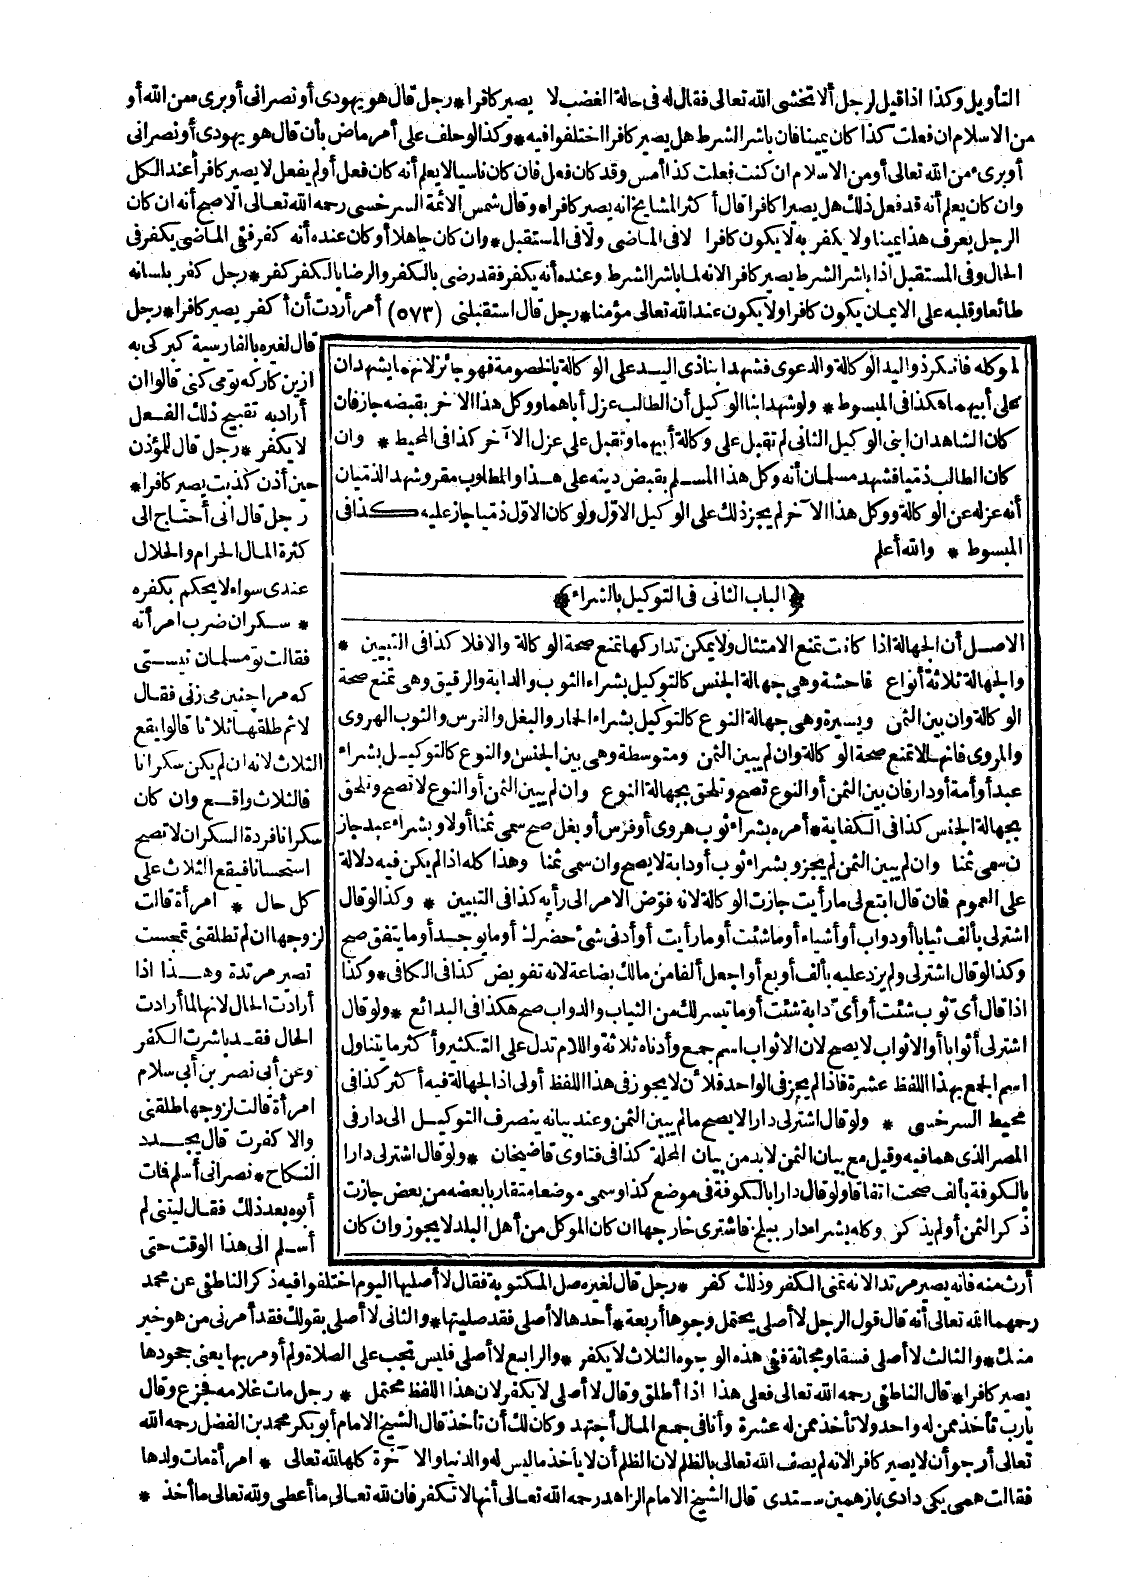 التأويل وكذا اذا قيل لرجل ألا تخشى الله تعالى فقال له فى حالة الغضب لا يصير كافرا * رجل قال هو يهودى أو نصرانى أو برىء من الله أو
من الاسلام ان فعلت كذا كان يمينا فان باشر الشرط هل يصير كافرا اختلفوا فيه * وكذا لو حلف على أمر ماض بأن قال هو يهودى أو نصرانى
أو برىء من الله تعالى أو من الاسلام ان كنت فعلت كذا أمس وقد كان فعل فان كان ناسيا لا يعلم أنه كان فعل أو لم يفعل لا يصير كافرا عند الكل
وان كان يعلم أنه قد فعل ذلك هل يصير كافرا قال أكثر المشايخ انه يصير كافرا * وقال شمس الائمة السرخسى رحمه الله تعالى الاصح أنه ان كان
الرجل يعرف هذا يمينا ولا يكفر به لا يكون كافرا لا فى الماضى ولا فى المستقبل * وان كان جاهلا أو كان عنده أنه كفر ففى الماضى يكفر فى
الحال وفى المستقبل اذا باشر الشرط يصير كافرا لانه لما باشر الشرط وعنده أنه يكفر فقد رضى بالكفر والرضا بالكفر كفر * رجل كفر بلسانه
طائعا وقلبه على الايمان يكون كافرا ولا يكون عند الله تعالى مؤمنا * رجل قال استقبلنى (٥٧٣) أمر أردت أن أكفر يصير كافرا * رجل
قال لغيره بالفارسية كبركى به
ازين كاركه تومى كنى قالوا ان
أراد به تقبيح ذلك الفعل
لا يكفر * رجل قال للمؤذن
حين أذن كذبت يصير كافرا *
رجل قال انى أحتاج الى
كثرة المال الحرام والحلال
عندى سواء لا يحكم بكفره
* سكران ضرب امرأته
فقالت تو مسلمان نيستى
كه مرا چنين مى زنى فقال
لا ثم طلقها ثلاثا قالوا يقع
الثلاث لانه ان لم يكن سكرانا
فالثلاث واقع وان كان
سكرانا فردة السكران لا تصح
استحسانا فيقع الثلاث على
كل حال * امرأة قالت
لزوجها ان لم تطلقنى تمجست
تصير مرتدة وهذا اذا
أرادت الحال لانها لما أرادت
الحال فقد باشرت الكفر
وعن أبى نصر بن أبى سلام
امرأة قالت لزوجها طلقنى
والا كفرت قال يجدد
النكاح * نصرانى أسلم فمات
أبوه بعد ذلك فقال ليتنى لم
أسلم الى هذا الوقت حتى
لموكله فانكر ذو اليد الوكالة والدعوى فشهد ابنا ذى اليد على الوكالة بالخصومة فهو جائز لانهما يشهدان
على أبيهما هكذا فى المبسوط * ولو شهد ابنا الوكيل أن الطالب عزل أباهما ووكل هذا الآخر بقبضه جاز فان
كان الشاهدان ابنى الوكيل الثانى لم تقبل على وكالة أبيهما وتقبل على عزل الآخر كذا فى المحيط * وان
كان الطالب ذميا فشهد مسلمان أنه وكل هذا المسلم بقبض دينه على هذا والمطلوب مقر وشهد الذميان
أنه عزله عن الوكالة ووكل هذا الآخر لم يجز ذلك على الوكيل الاول ولو كان الاول ذميا جاز عليه كذا فى
المبسوط * والله أعلم
﴿ الباب الثانى فى التوكيل بالشراء ﴾
الاصل أن الجهالة اذا كانت تمنع الامتثال ولا يمكن تداركها تمنع صحة الوكالة والا فلا كذا فى التبيين *
والجهالة ثلاثة أنواع فاحشة وهى جهالة الجنس كالتوكيل بشراء الثوب والدابة والرقيق وهى تمنع صحة
الوكالة وان بين الثمن ويسيرة وهى جهالة النوع كالتوكيل بشراء الحمار والبغل والفرس والثوب الهروى
والمروى فانها لا تمنع صحة الوكالة وان لم يبين الثمن ومتوسطة وهى بين الجنس والنوع كالتوكيل بشراء
عبد أو أمة أو دار فان بين الثمن أو النوع تصح وتلحق بجهالة النوع وان لم يبين الثمن أو النوع لا تصح وتلحق
بجهالة الجنس كذا فى الكفاية * أمره بشراء ثوب هروى أو فرس أو بغل صح سمى ثمنا أولا وبشراء عبد جاز
ن سمى ثمنا وان لم يبين الثمن لم يجز وبشراء ثوب أو دابة لا يصح وان سمى ثمنا وهذا كله اذا لم يكن فيه دلالة
على العموم فان قال ابتع لى ما رأيت جازت الوكالة لانه فوض الامر الى رأيه كذا فى التبيين * وكذا لو قال
اشتر لى بألف ثيابا أو دواب أو أشياء أو ما شئت أو ما رأيت أو أدنى شئ حضرك أو ما يوجد أو ما يتفق صح
وكذا لو قال اشتر لى ولم يزد عليه بألف أو بع أو اجعل ألفا من مالك بضاعة لانه تفويض كذا فى الكافى * وكذا
اذا قال أى ثوب شئت أو أى دابة شئت أو ما تيسر لك من الثياب والدواب صح هكذا فى البدائع * ولو قال
اشتر لى أثوابا أو الاثواب لا يصح لان الاثواب اسم جمع وأدناه ثلاثة واللام تدل على التكثير وأكثر ما يتناول
اسم الجمع بهذا اللفظ عشرة فاذا لم يجز فى الواحد فلأن لا يجوز فى هذا اللفظ أولى اذا الجهالة فيه أكثر كذا فى
محيط السرخسى * ولو قال اشتر لى دارا لا يصح ما لم يبين الثمن وعند بيانه ينصرف التوكيل الى دار فى
المصر الذى هما فيه وقيل مع بيان الثمن لا بد من بيان المحلة كذا فى فتاوى قاضيخان * ولو قال اشتر لى دارا
بالكوفة بألف صحت اتفاقا ولو قال دارا بالكوفة فى موضع كذا وسمى موضعا متقاربا بعضه من بعض جازت
ذكر الثمن أو لم يذكر وكله بشراء دار ببلخ فاشترى خارجها ان كان الموكل من أهل البلد لا يجوز وان كان
أرث منه فانه يصير مرتدا لانه تمنى الكفر وذلك كفر * رجل قال لغيره صل المكتوبة فقال لا أصليها اليوم اختلفوا فيه ذكر الناطفى عن محمد
رحمهما الله تعالى أنه قال قول الرجل لا أصلى يحتمل وجوها أربعة * أحدها لا أصلى فقد صليتها * والثانى لا أصلى بقولك فقد أمرنى من هو خير
منك * والثالث لا أصلى فسقا ومجانة ففى هذه الوجوه الثلاث لا يكفر * والرابع لا أصلى فليس تجب على الصلاة ولم أومر بها يعنى جحودها
يصير كافرا * قال الناطفى رحمه الله تعالى فعلى هذا اذا أطلق وقال لا أصلى لا يكفر لان هذا اللفظ محتمل * رجل مات غلامه فجزع وقال
يارب تأخذ ممن له واحد ولا تأخذ ممن له عشرة وأنا فى جمع المال أجتهد وكان لك أن تأخذ قال الشيخ الامام أبو بكر محمد بن الفضل رحمه الله
تعالى أرجو أن لا يصير كافرا لانه لم يصف الله تعالى بالظلم لان الظلم أن لا يأخذ ما ليس له والدنيا والآخرة كلها لله تعالى * امرأة مات ولدها
فقالت همى يكى دادى بازهمين ستدى قال الشيخ الامام الزاهد رحمه الله تعالى أنها لا تكفر فان لله تعالى ما أعطى ولله تعالى ما أخذ *